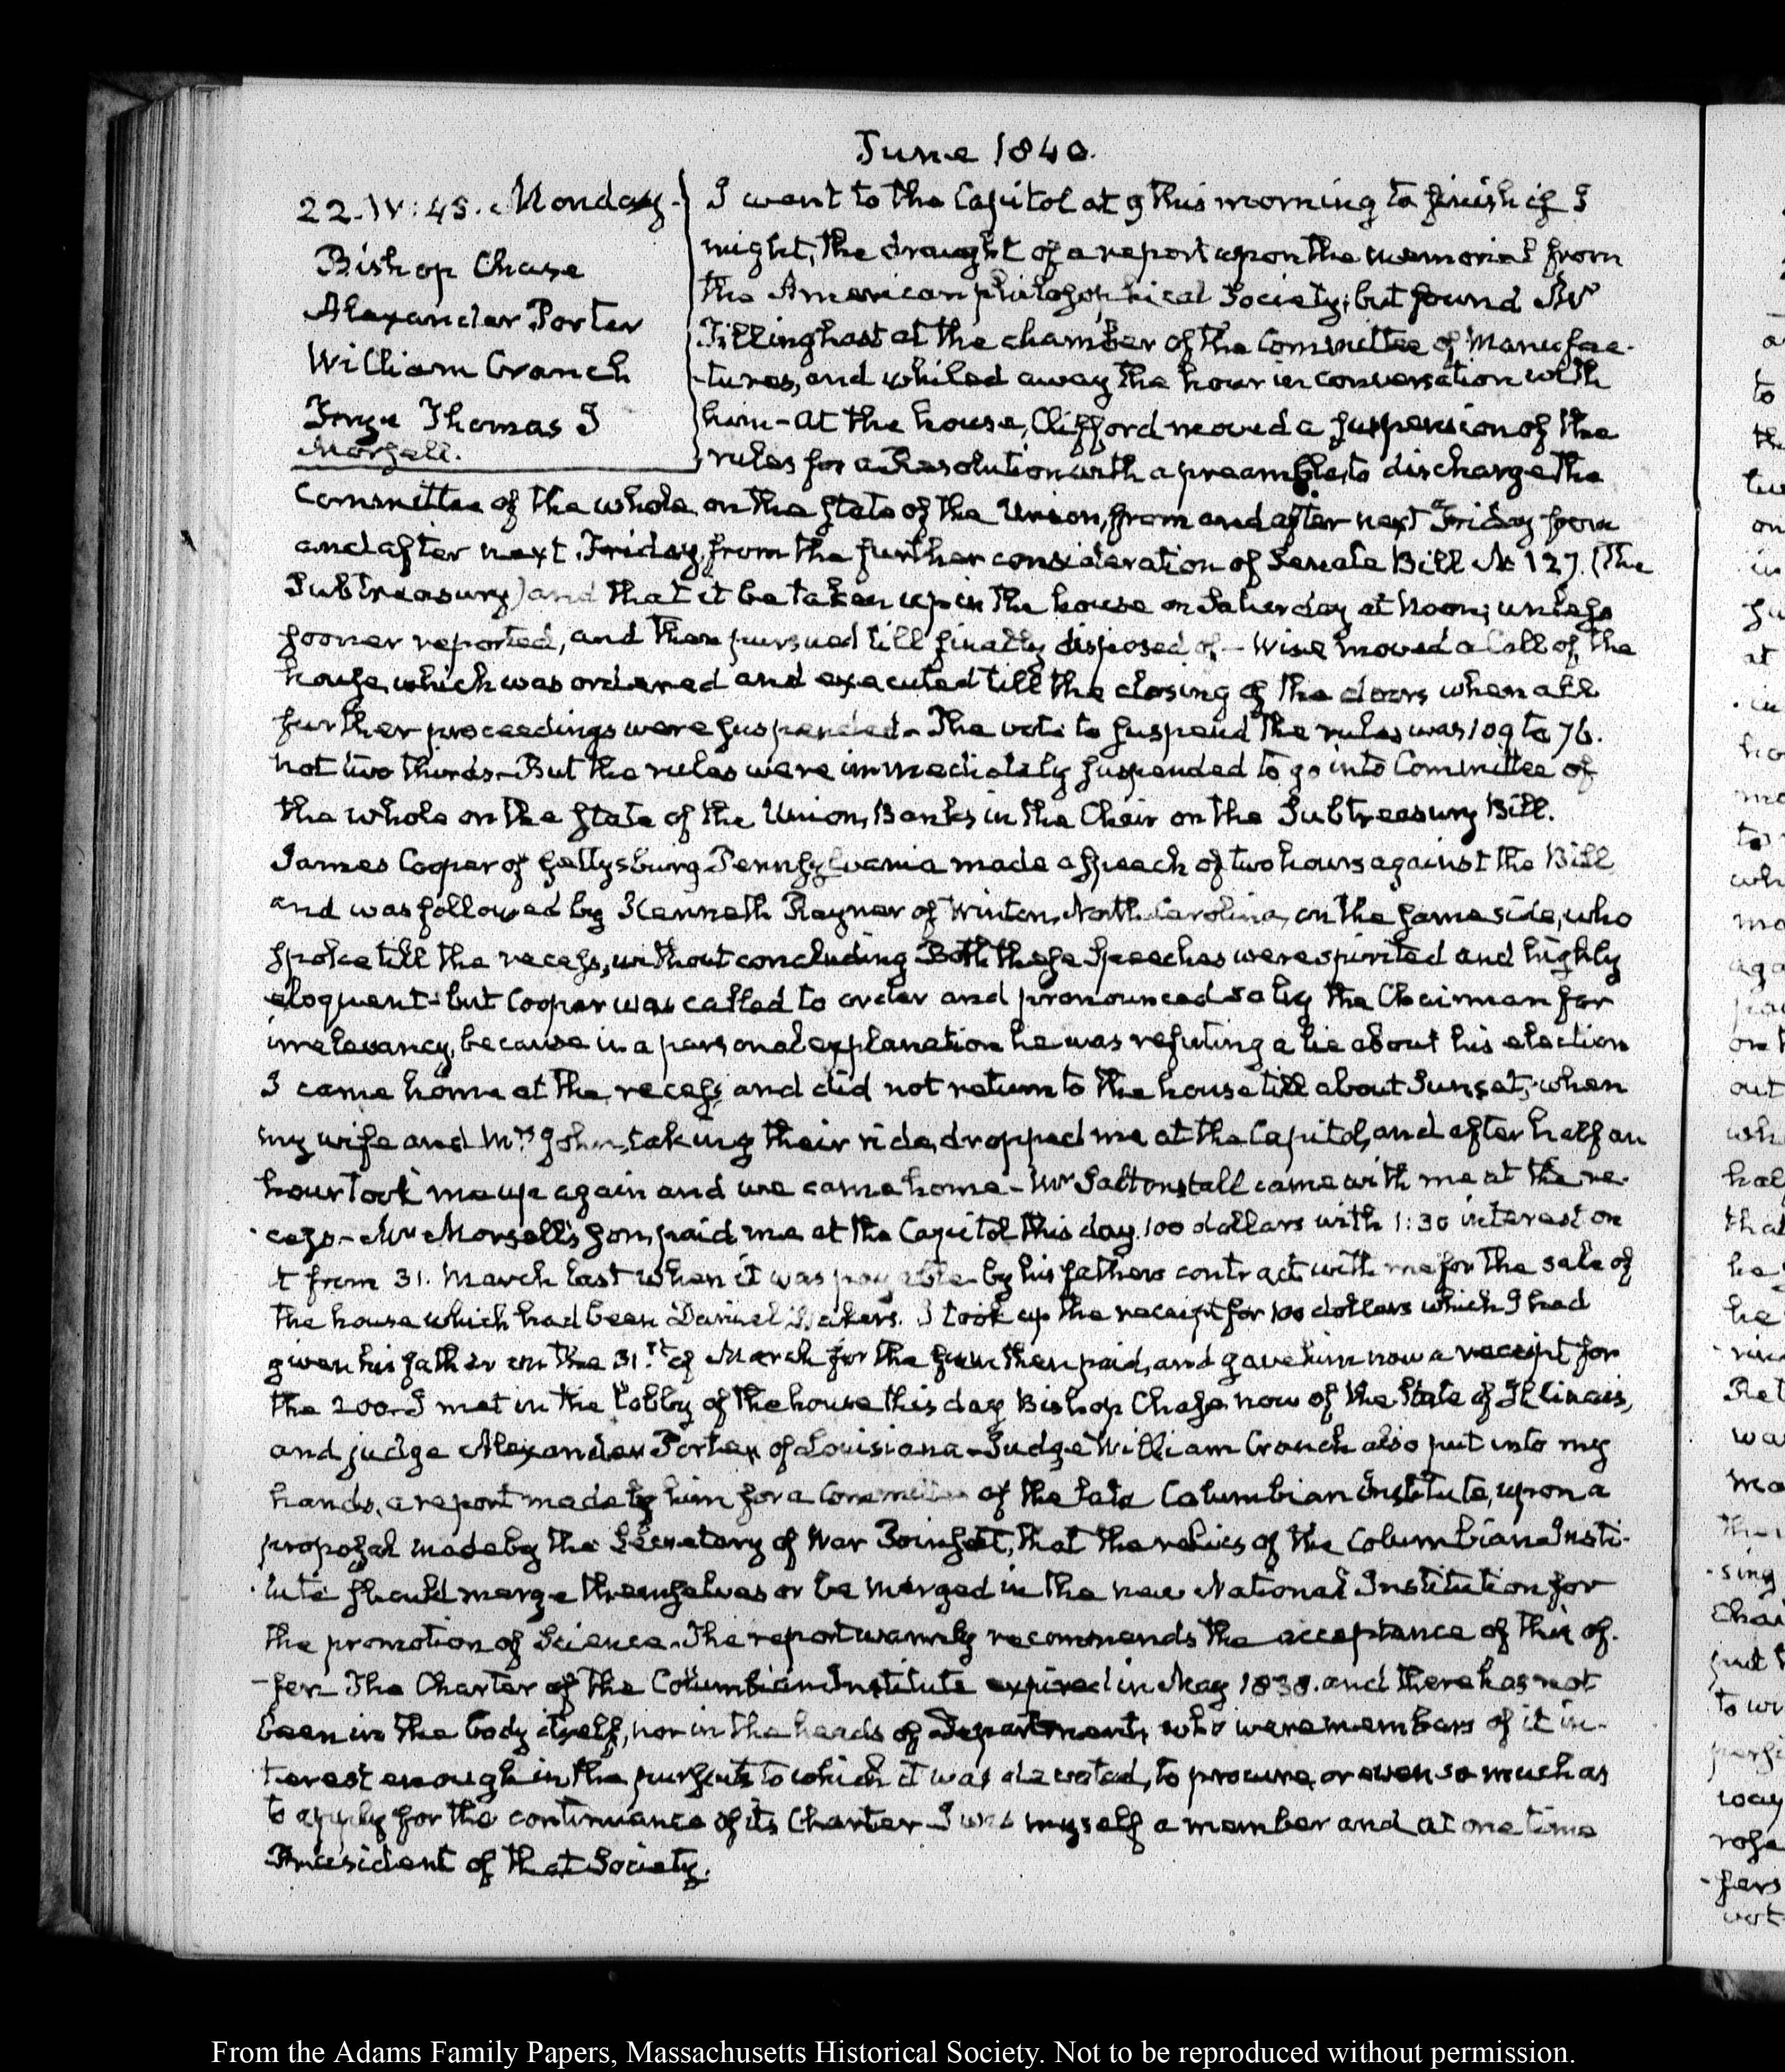 June 1840.
22. IV:45. Monday.
Bishop Chase
Alexander Porter
William Cranch
Thomas
Morsell.
I went to the Capitol at 9 this morning to finish if I
might, the draught of a report upon the memorial from
the American philosophical Society; but found Mr
Tillinghast at the chamber of the Committee of Manufac-
-tures, and whiled away the hour in conversation with
him – at the house, Clifford moved a suspension of the
rules for a Resolution with a preamble, to discharge the
Committee of the whole on the state of the Union, from and after next Friday from
and after next Friday, from the further consideration of Senate Bill No 127. (The
Subtreasury) and that it be taken up in the house on Saturday at Noon; unless
sooner reported, and then pursued till finally disposed of – Wise moved a Call of the
house, which was ordered and executed till the closing of the doors when all
further proceedings were suspended – The vote to suspend the rules was 109 to 76.
not two thirds – But the rules were immediately suspended to go into Committee of
the whole on the state of the Union, Banks in the Chair on the Subtreasury Bill.
James Cooper of Gettysburg Pennsylvania made a speech of two hours against the Bill
and was followed by Kenneth Rayner of Winton, North Carolina, on the same side, who
spoke till the recess, without concluding Both these Speeches were spirited and highly
eloquent – but Cooper was called to order and pronounced so by the Chairman for
irrelevancy, because in a personal explanation he was refuting a lie about his election
I came home at the recess and did not return to the house till about Sunset, when
my wife and Mrs John, taking their ride, dropped me at the Capitol, and after half an
hour took me up again and we came home – Mr Saltonstall came with me at the re-
-cess – Mr Morsell's son, paid me at the Capitol this day 100 dollars with 1:30 interest on
it from 31. March last when it was payable by his fathers contract with me for the sale of
the house which had been Daniel Bakers. I took up the receipt for 100 dollars which I had
given his father on the 31.st of March for the sum then paid, and gave him now a receipt for
the 200. I met in the lobby of the house this day Bishop Chase, now of the State of Illinois,
and judge Alexander Porter of Louisiana – Judge William Cranch also put into my
hands, a report made by him for a Committee of the late Columbian Institute, upon a
proposal made by the Secretary of War Poinsett, that the relics of the Columbian Insti-
-tute should merge themselves or be merged in the new National Institution for
the promotion of Science. The report warmly recommends the acceptance of this of-
-fer – The Charter of the Columbian Institute expired in May 1838. and there has not
been in the body itself, nor in the heads of Department, who were members of it in-
-terest enough in the pursuits to which it was devoted, to procure, or even so much as
to apply for the continuance of its Charter – I was myself a member and at one time
President of that Society.
From the Adams Family Papers, Massachusetts Historical Society. Not to be reproduced without permission.